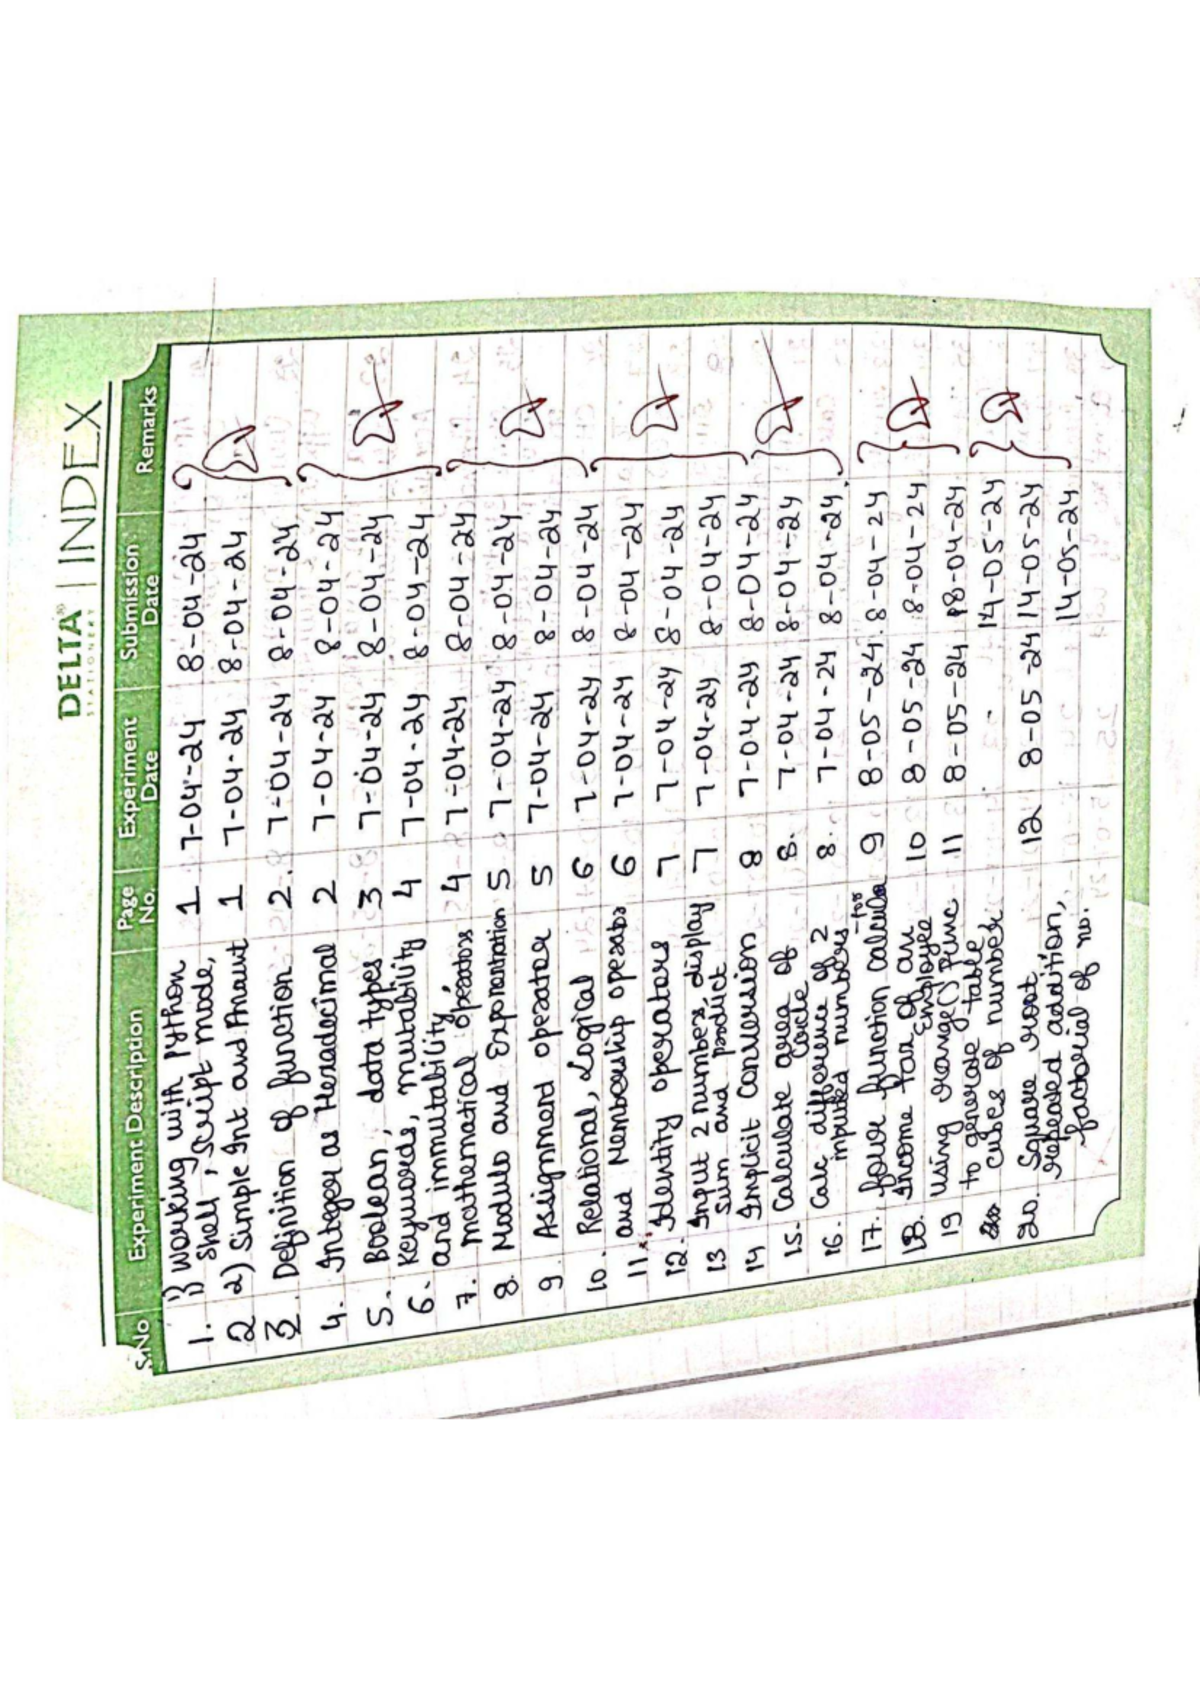 DELTA® | INDEX
STATIONERY
S.No Experiment Description Page No. Experiment Date Submission Date Remarks
1. 1) Working with Python 1 7-04-24 8-04-24
shell, script mode,
2 2) Simple Int and Amount 1 7-04-24 8-04-24
3. Definition of function 2. 7-04-24 8-04-24
4. Integer as Hexadecimal 2 7-04-24 8-04-24
5. Boolean, data types 3 7-04-24 8-04-24
6. Keywords, mutability 4 7-04-24 8-04-24
and immutability,
7. mathematical operators 4 7-04-24 8-04-24
8. Modulo and Exponentiation 5 7-04-24 8-04-24
9. Assignment operator 5 7-04-24 8-04-24
10. Relational, Logical 6 7-04-24 8-04-24
11. and Membership operator 6 7-04-24 8-04-24
12. Identity operators 7 7-04-24 8-04-24
13 Input 2 numbers, display 7 7-04-24 8-04-24
sum and product
14 Implicit Conversion 8 7-04-24 8-04-24
15. Calculate area of 8. 7-04-24 8-04-24
Circle
16. Calc difference of 2 8. 7-04-24 8-04-24.
inputed numbers
17. four function calculator 9 8-05-24. 8-04-24
18. Income tax of an 10 8-05-24 8-04-24
Employee
19 using range() func 11 8-05-24 8-04-24
to generate table, - 14-05-24
cubes of number
20. Square root, 12 8-05-24 14-05-24
repeated addition, 14-05-24
factorial of no.